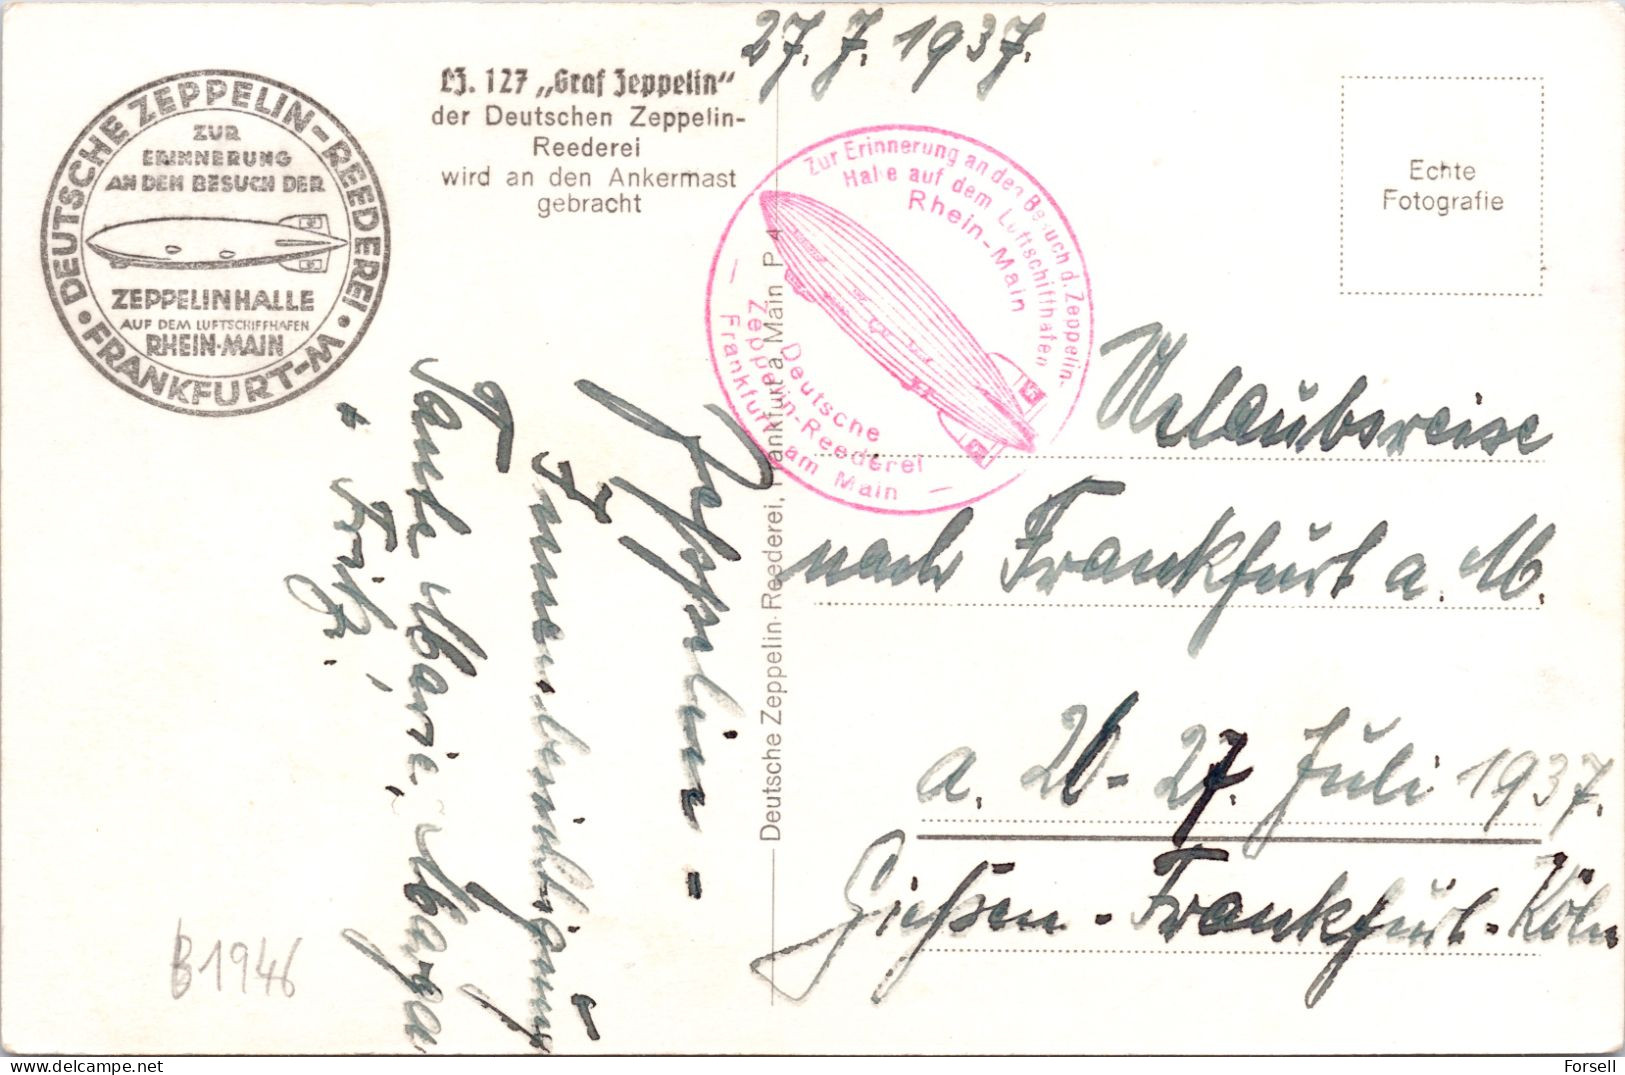 27.7.1937.
LZ. 127 „Graf Zeppelin“
der Deutschen Zeppelin-
Reederei
wird an den Ankermast
gebracht
DEUTSCHE ZEPPELIN-REEDEREI • FRANKFURT-M •
ZUR
ERINNERUNG
AN DEN BESUCH DER
ZEPPELINHALLE
AUF DEM LUFTSCHIFFHAFEN
RHEIN-MAIN
Zur Erinnerung an den Besuch d. Zeppelin-
Halle auf dem Luftschiffhafen
Rhein-Main
Deutsche
Zeppelin-Reederei
Frankfurt am Main
Echte
Fotografie
Deutsche Zeppelin-Reederei, Frankfurt a. Main P. 4
Zeppelin-
Innenbesichtigung
Tante Marie, Marga
u. Fritz.
Urlaubsreise
nach Frankfurt a. M.
a. 26-27. Juli 1937.
Gießen-Frankfurt-Köln
B1946
Forsell